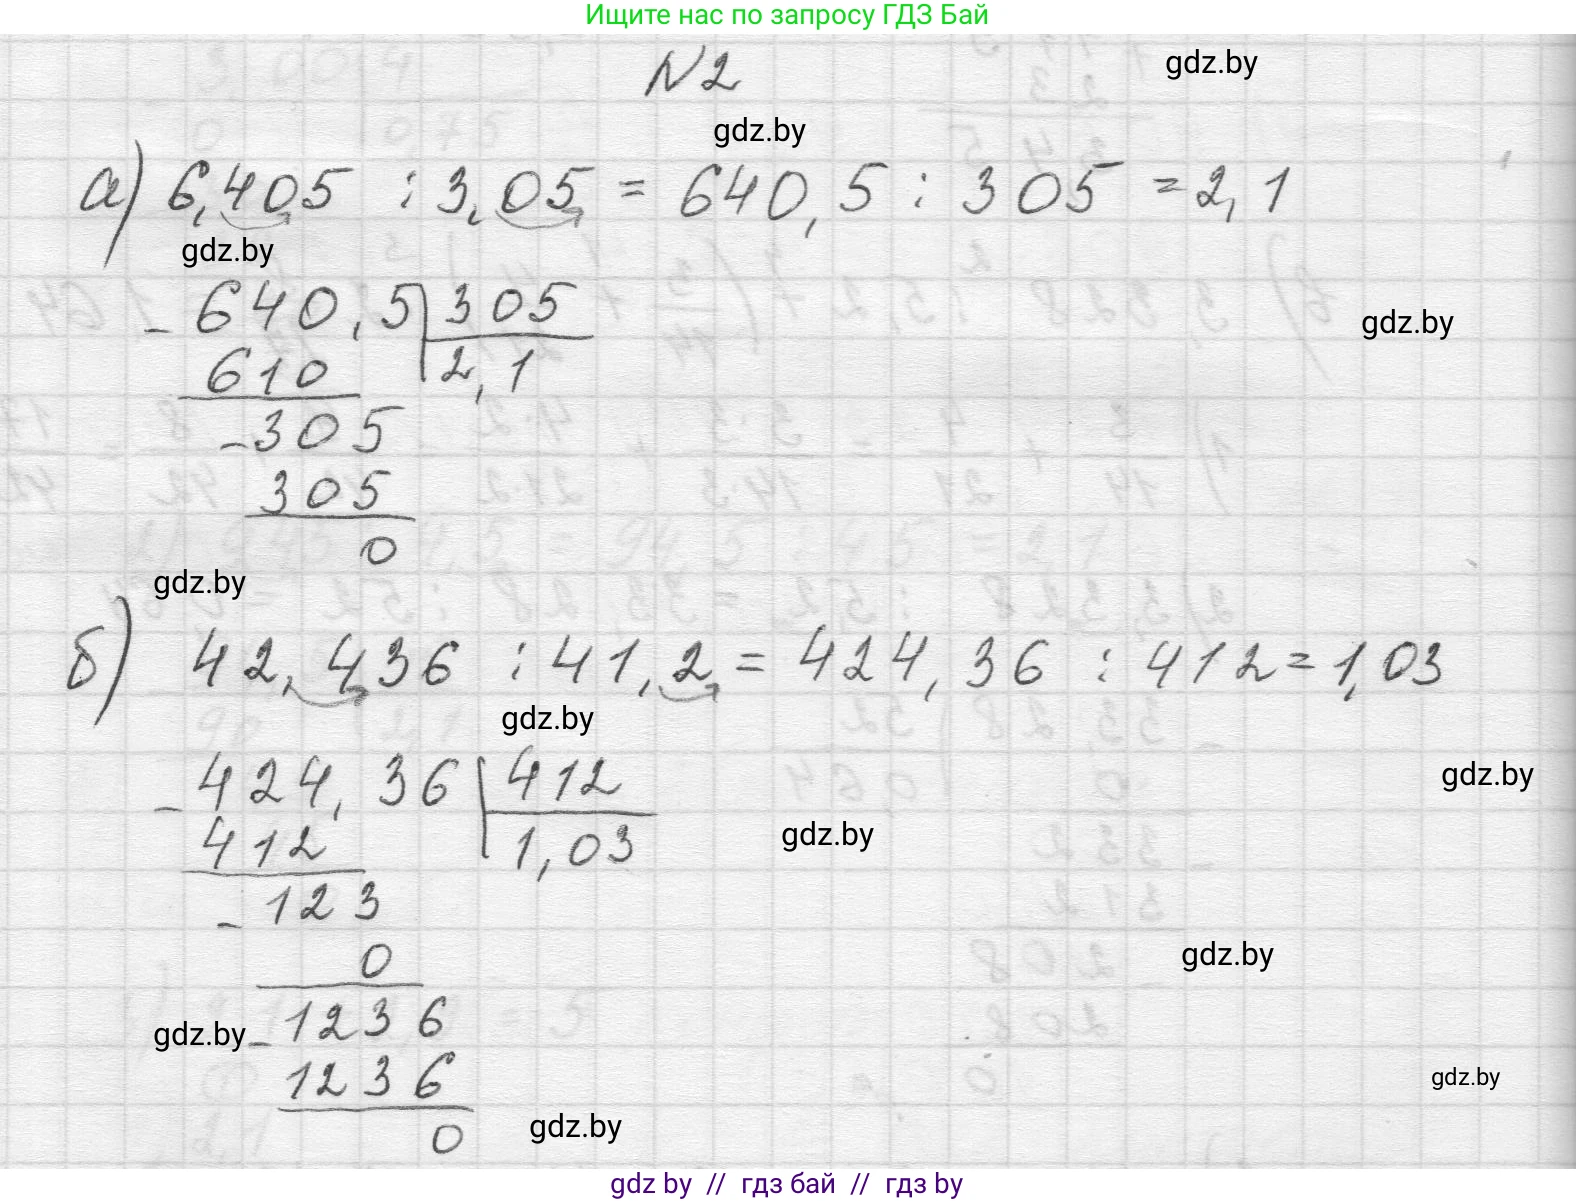 Ищите нас по запросу ГДЗ Бай
N2
gdz.by
gdz.by
а) 6,405 : 3,05 = 640,5 : 305 = 2,1
gdz.by
- 640,5 | 305
610 | 2,1
gdz.by
- 305
305
0
gdz.by
б) 42,436 : 41,2 = 424,36 : 412 = 1,03
gdz.by
- 424,36 | 412
gdz.by
412 | 1,03
gdz.by
- 123
0
gdz.by
- 1236
gdz.by
1236
gdz.by
0
gdz.by
gdz by // гдз бай // гдз by